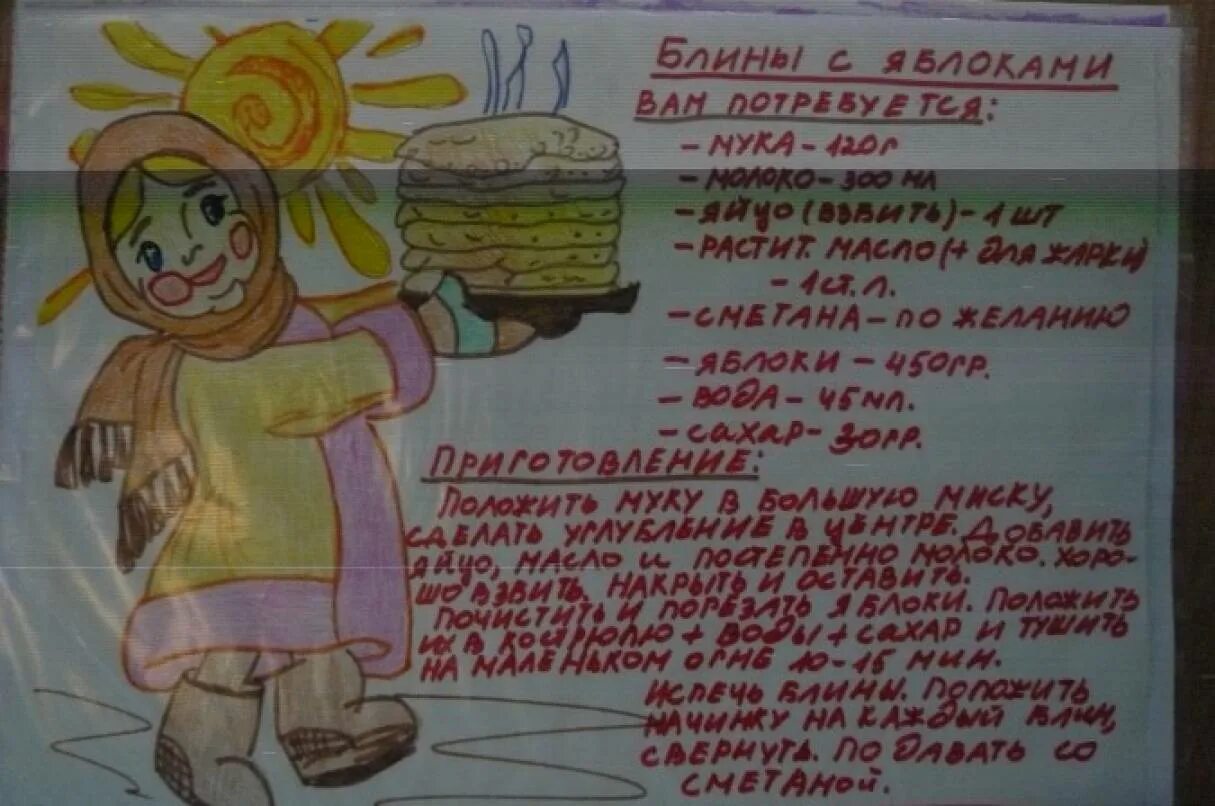 Блины с яблоками
Вам потребуется:
- мука - 120г
- молоко - 300 мл
- яйцо (взбить) - 1 шт
- растит. масло (+ для жарки)
- 1 ст. л.
- сметана - по желанию
- яблоки - 450гр.
- вода - 45 мл.
- сахар - 30гр.
Приготовление:
Положить муку в большую миску,
сделать углубление в центре. Добавить
яйцо, масло и постепенно молоко. Хоро-
шо взбить. Накрыть и оставить.
Почистить и порезать яблоки. Положить
их в кострюлю + воды + сахар и тушить
на маленьком огне 10-15 мин.
Испечь блины. Положить
начинку на каждый блин,
свернуть. Подавать со
сметаной.